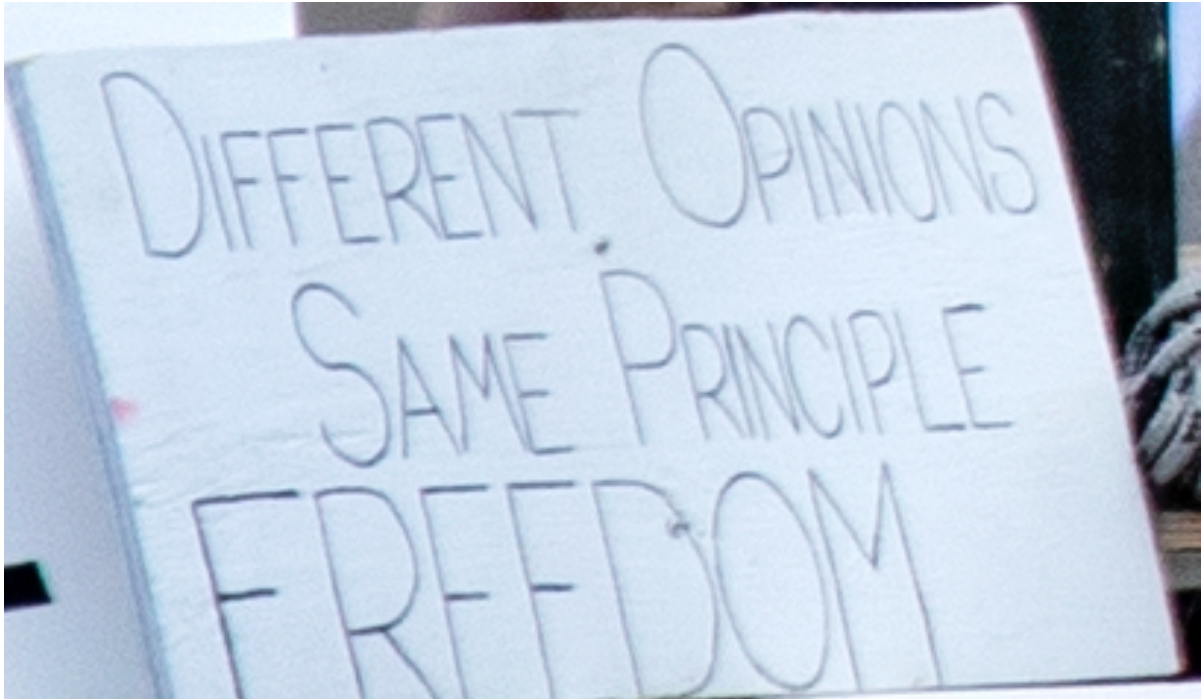 DIFFERENT OPINIONS
SAME PRINCIPLE
FREEDOM